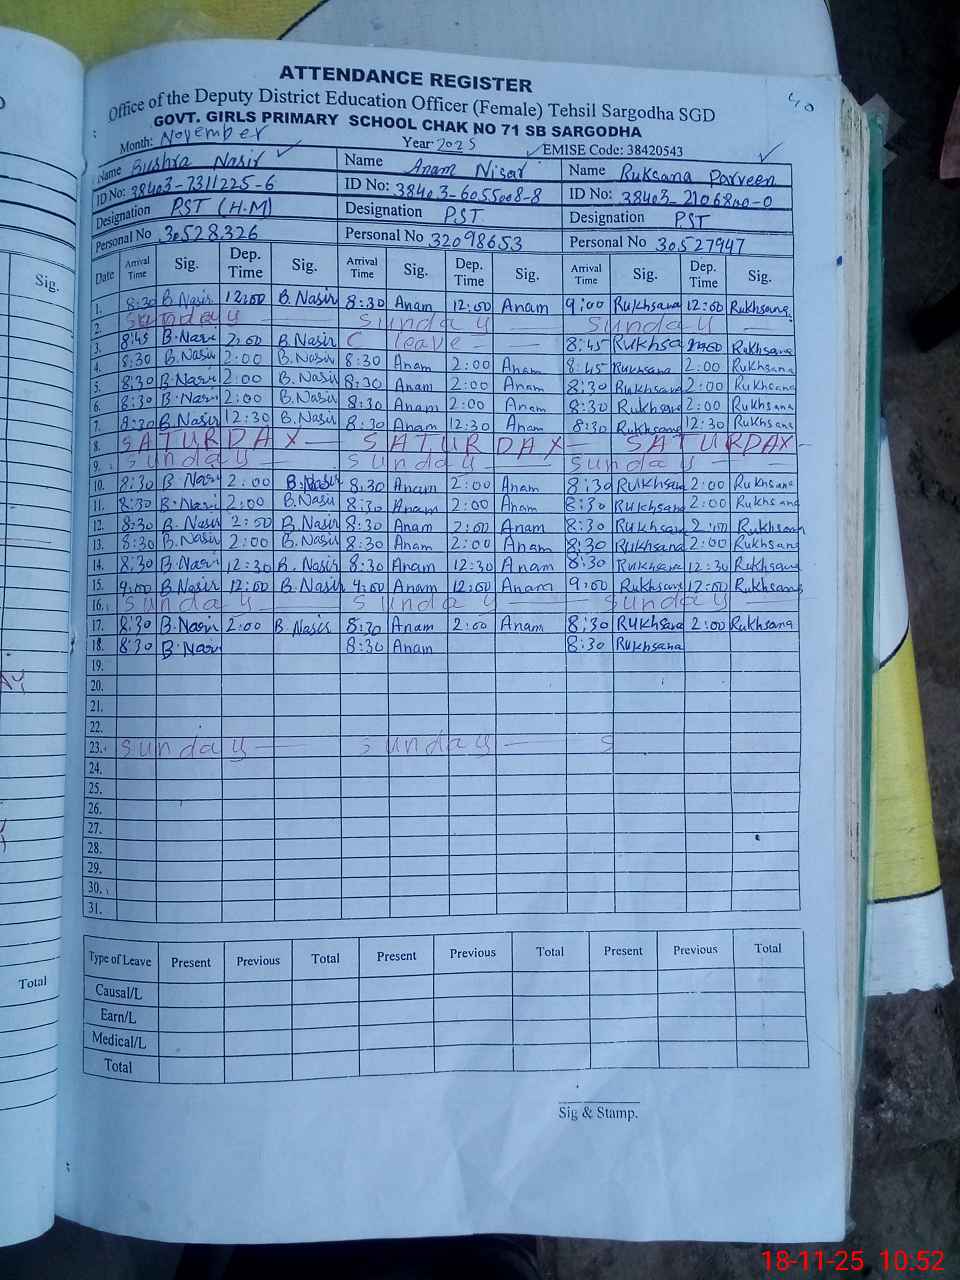 ATTENDANCE REGISTER
40
Office of the Deputy District Education Officer (Female) Tehsil Sargodha SGD
GOVT. GIRLS PRIMARY SCHOOL CHAK NO 71 SB SARGODHA
Month: November Year 2025 EMISE Code: 38420543
Name Bushra Nasir Name Anam Nisar Name Ruksana Parveen
ID No: 38403-7311225-6 ID No: 38403-6055008-8 ID No: 38403-2106800-0
Designation PST (H-M) Designation PST Designation PST
Personal No 30528326 Personal No 32098653 Personal No 30527947
Date Arrival Time Sig. Dep. Time Sig. Arrival Time Sig. Dep. Time Sig. Arrival Time Sig. Dep. Time Sig.
1. 8:30 B.Nasir 12:00 B.Nasir 8:30 Anam 12:00 Anam 9:00 Rukhsana 12:00 Rukhsana
2. Sunday Sunday
3. 8:45 B.Nasir 2:00 B.Nasir C leave 8:45 Rukhsa Rukhsana
4. 8:30 B.Nasir 2:00 B.Nasir 8:30 Anam 2:00 Anam 8:45 Rukhsana 2:00 Rukhsana
5. 8:30 B.Nasir 2:00 B.Nasir 8:30 Anam 2:00 Anam 8:30 Rukhsana 2:00 Rukhsana
6. 8:30 B.Nasir 2:00 B.Nasir 8:30 Anam 2:00 Anam 8:30 Rukhsana 2:00 Rukhsana
7. 8:30 B.Nasir 12:30 B.Nasir 8:30 Anam 12:30 Anam 8:30 Rukhsana 12:30 Rukhsana
8. SATURDAY SATURDAY SATURDAY
9. Sunday Sunday Sunday
10. 8:30 B.Nasir 2:00 B.Nasir 8:30 Anam 2:00 Anam 8:30 Rukhsana 2:00 Rukhsana
11. 8:30 B.Nasir 2:00 B.Nasir 8:30 Anam 2:00 Anam 8:30 Rukhsana 2:00 Rukhsana
12. 8:30 B.Nasir 2:00 B.Nasir 8:30 Anam 2:00 Anam 8:30 Rukhsana 2:00 Rukhsana
13. 8:30 B.Nasir 2:00 B.Nasir 8:30 Anam 2:00 Anam 8:30 Rukhsana 2:00 Rukhsana
14. 8:30 B.Nasir 12:30 B.Nasir 8:30 Anam 12:30 Anam 8:30 Rukhsana 12:30 Rukhsana
15. 9:00 B.Nasir 12:00 B.Nasir 9:00 Anam 12:00 Anam 9:00 Rukhsana 12:00 Rukhsana
16. Sunday Sunday Sunday
17. 8:30 B.Nasir 2:00 B.Nasir 8:30 Anam 2:00 Anam 8:30 Rukhsana 2:00 Rukhsana
18. 8:30 B.Nasir 8:30 Anam 8:30 Rukhsana
19.
20.
21.
22.
23. Sunday Sunday S
24.
25.
26.
27.
28.
29.
30.
31.
Type of Leave Present Previous Total Present Previous Total Present Previous Total
Causal/L
Earn/L
Medical/L
Total
Sig & Stamp.
Sig.
Total
18-11-25 10:52